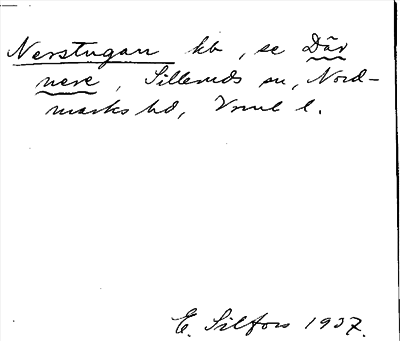 Nerstugan kb, se Där
nere, Silleruds sn, Nord-
marks hd, Vrml l.
E. Silfors 1937.